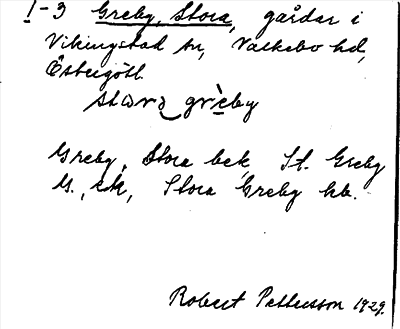 I-3 Greby, Stora, gårdar i
Vikingstad sn, Valkebo hd,
Östergötl.
stωra grèby
Greby, Stora bek, St. Greby
G., ek, Stora Greby kb.
Robert Pettersson 1929.